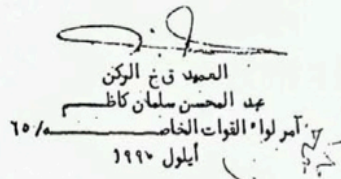 العميد ق خ الركن
عبد المحسن سلمان كاظم
آمر لواء القوات الخاصة/٦٥
أيلول ١٩٩٠